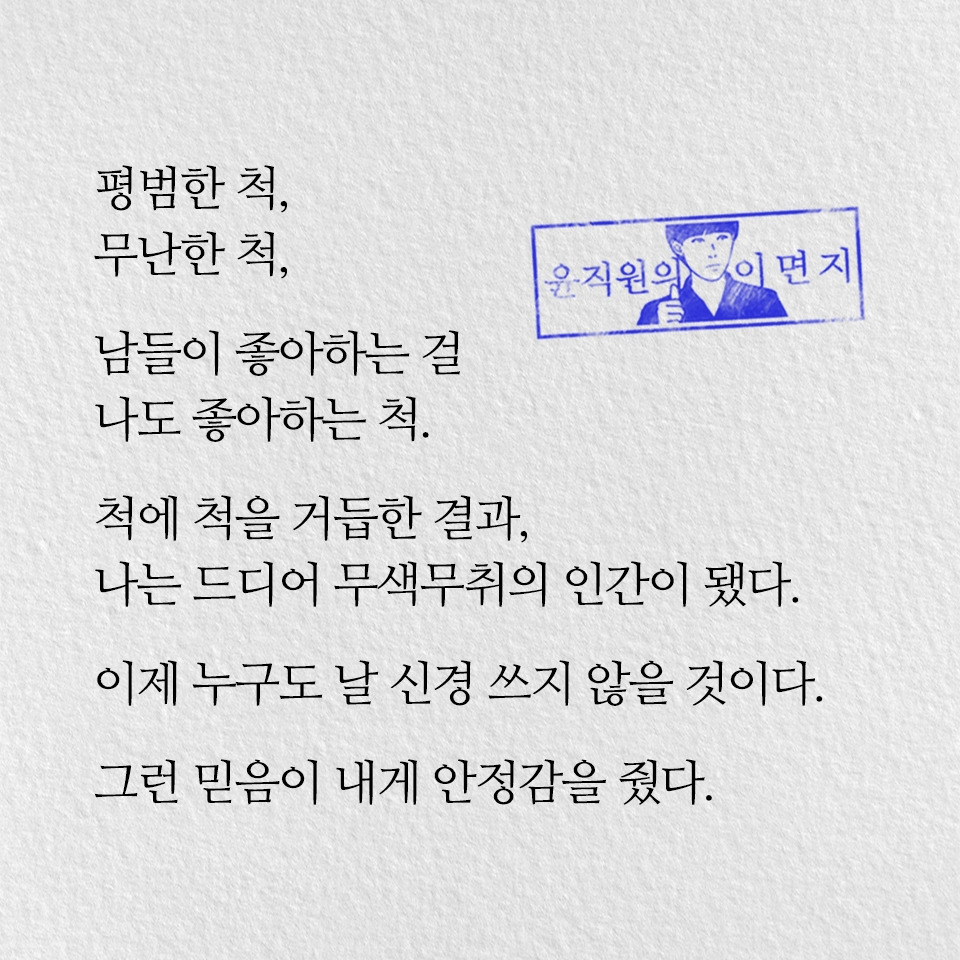 평범한 척,
무난한 척,
윤직원의 이면지
남들이 좋아하는 걸
나도 좋아하는 척.
척에 척을 거듭한 결과,
나는 드디어 무색무취의 인간이 됐다.
이제 누구도 날 신경 쓰지 않을 것이다.
그런 믿음이 내게 안정감을 줬다.